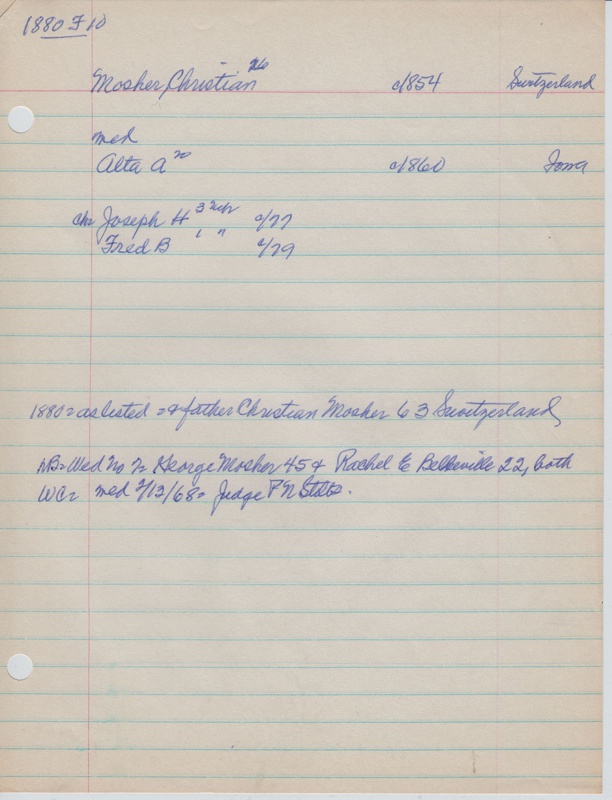 1880 F 10
Mosher, Christian 26 c/854 Switzerland
med
Alta A 20 c/860 Iowa
chs Joseph H 3 c/77
Fred B " " c/79
1880 = as listed = & father Christian Mosher 63 Switzerland,
NB = Wed No = George Mosher 45 & Rachel E Belleville 22, both
WC = med 2/13/68 = Judge P N